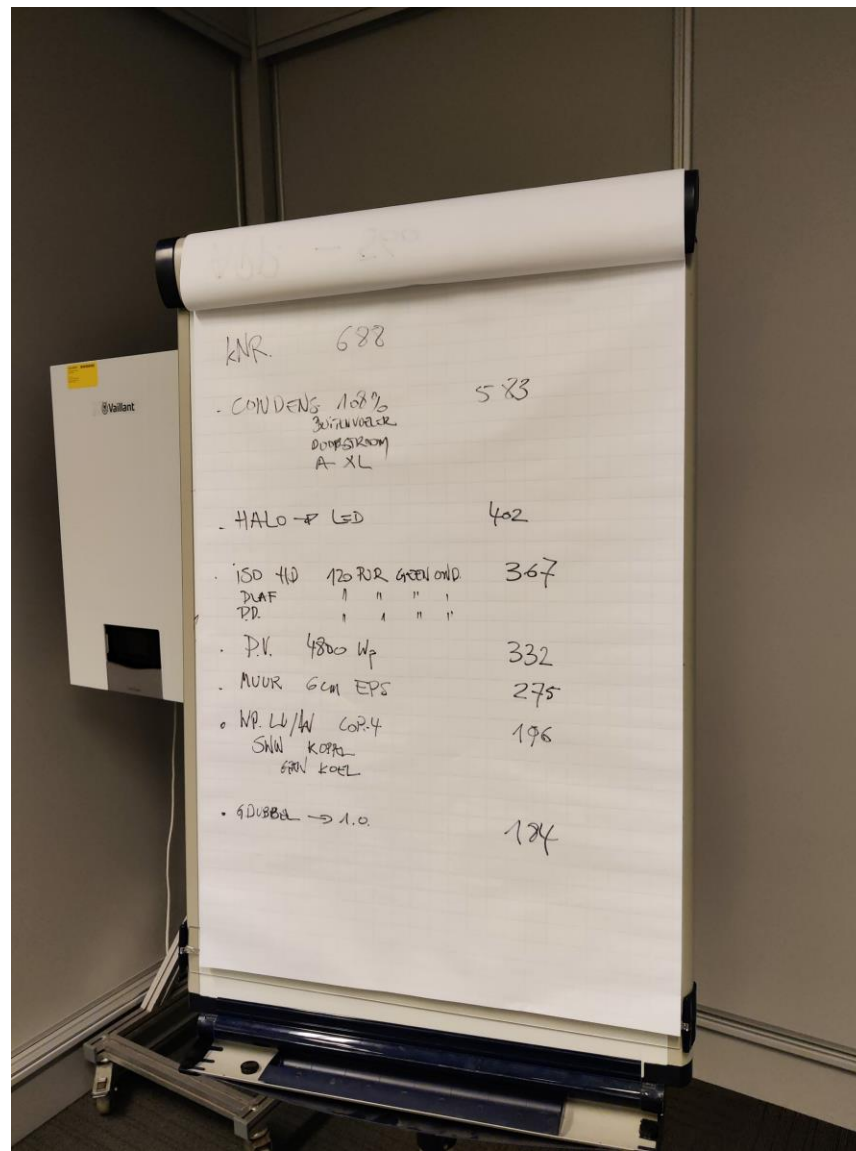 KNR. 688
Vaillant
. CONDENS 108% 583
BUITENVOELER
DOORSTROOM
A XL
- HALO → LED 402
. ISO HD 120 PUR GEEN OND. 367
PLAF " " " "
P.D. " " " "
. P.V. 4800 Wp 332
. MUUR 6cm EPS 275
• WP. LU/W COP.4 196
SWW KOPPEL
GEEN KOEL
. GDUBBEL → 1.0. 184